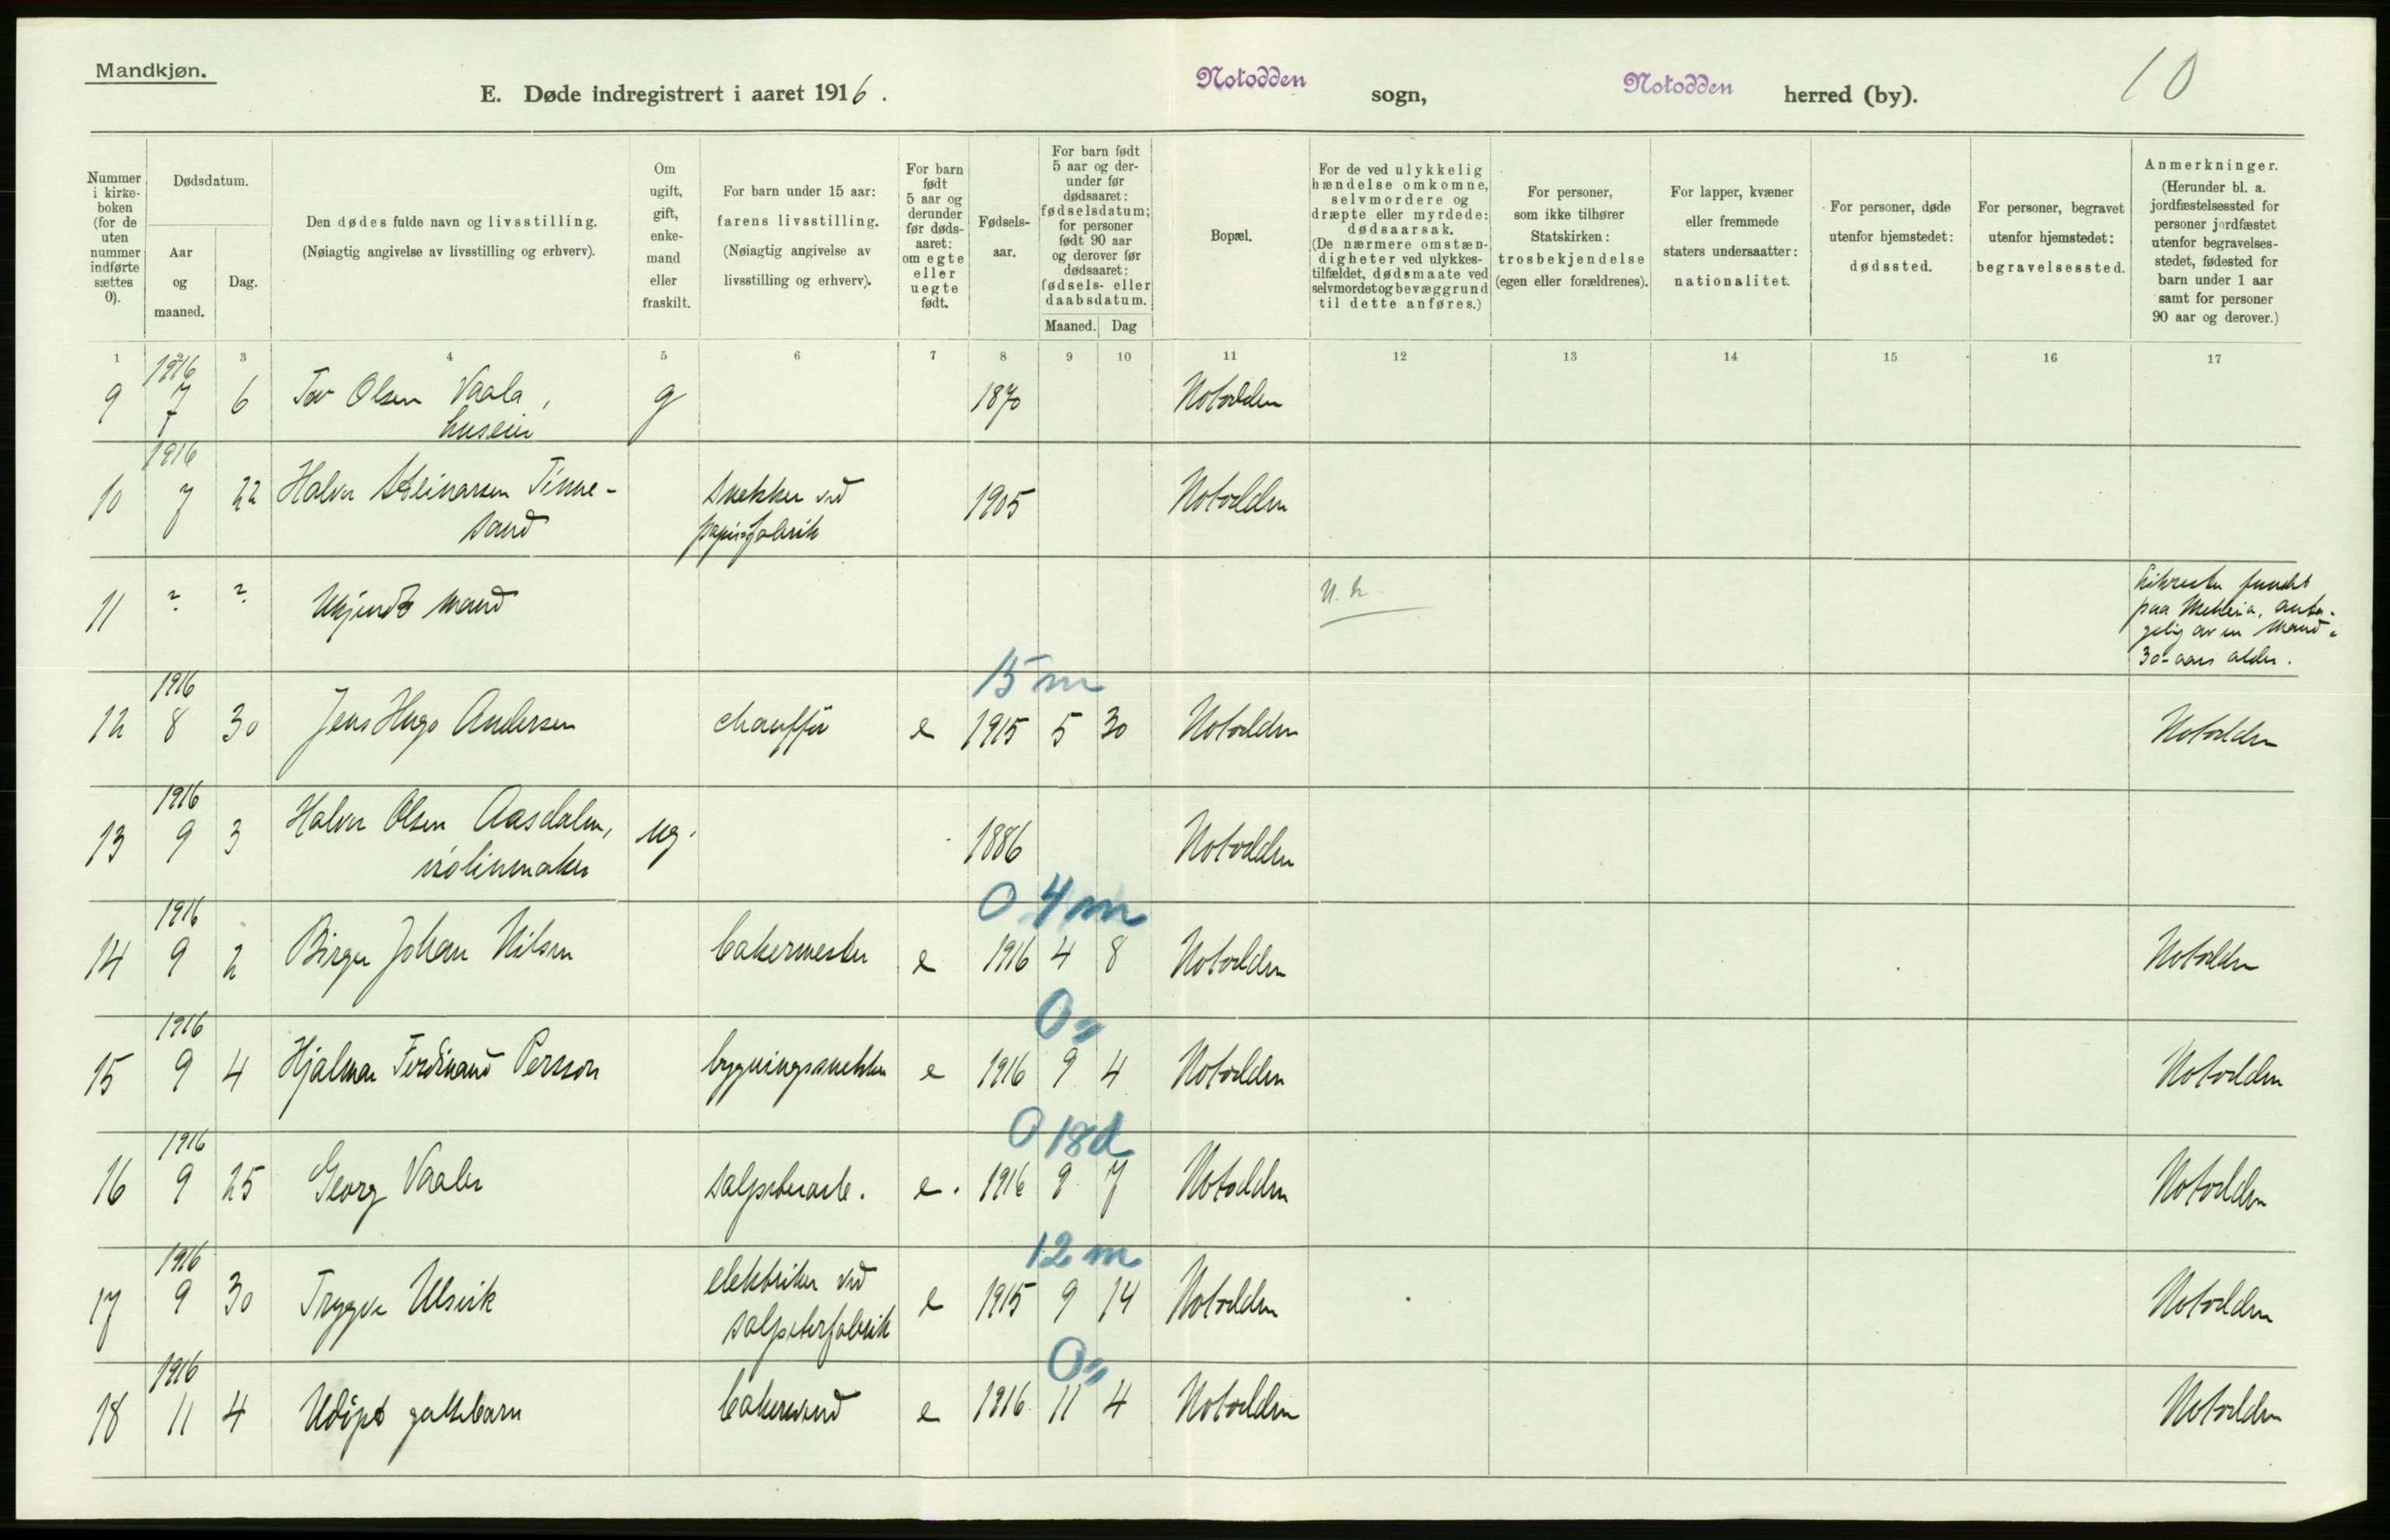 Mandkjøn.
E. Døde indregistrert i aaret 1916.
Notodden sogn,
Notodden herred (by).
10
Nummer i kirkeboken (for de uten nummer indførte sættes 0).
Dødsdatum.
Aar og maaned.
Dag.
Den dødes fulde navn og livsstilling.
(Nøiagtig angivelse av livsstilling og erhverv).
Om ugift, gift, enkemand eller fraskilt.
For barn under 15 aar: farens livsstilling.
(Nøiagtig angivelse av livsstilling og erhverv).
For barn født 5 aar og derunder før dødsaaret: om egte eller uegte født.
Fødselsaar.
For barn født 5 aar og derunder før dødsaaret: fødselsdatum; for personer født 90 aar og derover før dødsaaret: fødsels- eller daabsdatum.
Maaned. Dag
Bopæl.
For de ved ulykkelig hændelse omkomne, selvmordere og dræpte eller myrdede: dødsaarsak.
(De nærmere omstændigheter ved ulykkestilfældet, dødsmaate ved selvmordet og bevæggrund til dette anføres.)
For personer, som ikke tilhører Statskirken: trosbekjendelse (egen eller forældrenes).
For lapper, kvæner eller fremmede staters undersaatter: nationalitet.
For personer, døde utenfor hjemstedet: dødssted.
For personer, begravet utenfor hjemstedet: begravelsessted.
Anmerkninger.
(Herunder bl. a. jordfæstelsessted for personer jordfæstet utenfor begravelsesstedet, fødested for barn under 1 aar samt for personer 90 aar og derover.)
1 2 3 4 5 6 7 8 9 10 11 12 13 14 15 16 17
1916
9 7 6 Tov Olsen Vaala, g 1870 Notodden
huseier
1916
10 7 22 Halvor Steinarsen Tinne- snekker ved 1905 Notodden
sand papirfabrik
11 ? ? Ukjendt mand U. h. Likrester fundet
paa Meheia, anta-
gelig av en mand i
30-aars alder.
15 m
1916
12 8 30 Jens Hugo Andersen chauffør e 1915 5 30 Notodden Notodden
1916
13 9 3 Halvor Olsen Aasdalen, ug. 1886 Notodden
violinmaker
0 4 m
1916
14 9 2 Birger Johan Nilsen bakermester e 1916 4 8 Notodden Notodden
0
1916
15 9 4 Hjalmar Ferdinand Persson bygningssnekker e 1916 9 4 Notodden Notodden
0 18 d
1916
16 9 25 Georg Vaaler salpeterarb. e. 1916 9 7 Notodden Notodden
12 m
1916
17 9 30 Trygve Ulsvik elektriker ved e 1915 9 14 Notodden Notodden
salpeterfabrik
0
1916
18 11 4 Udøpt guttebarn bakersvend e 1916 11 4 Notodden Notodden